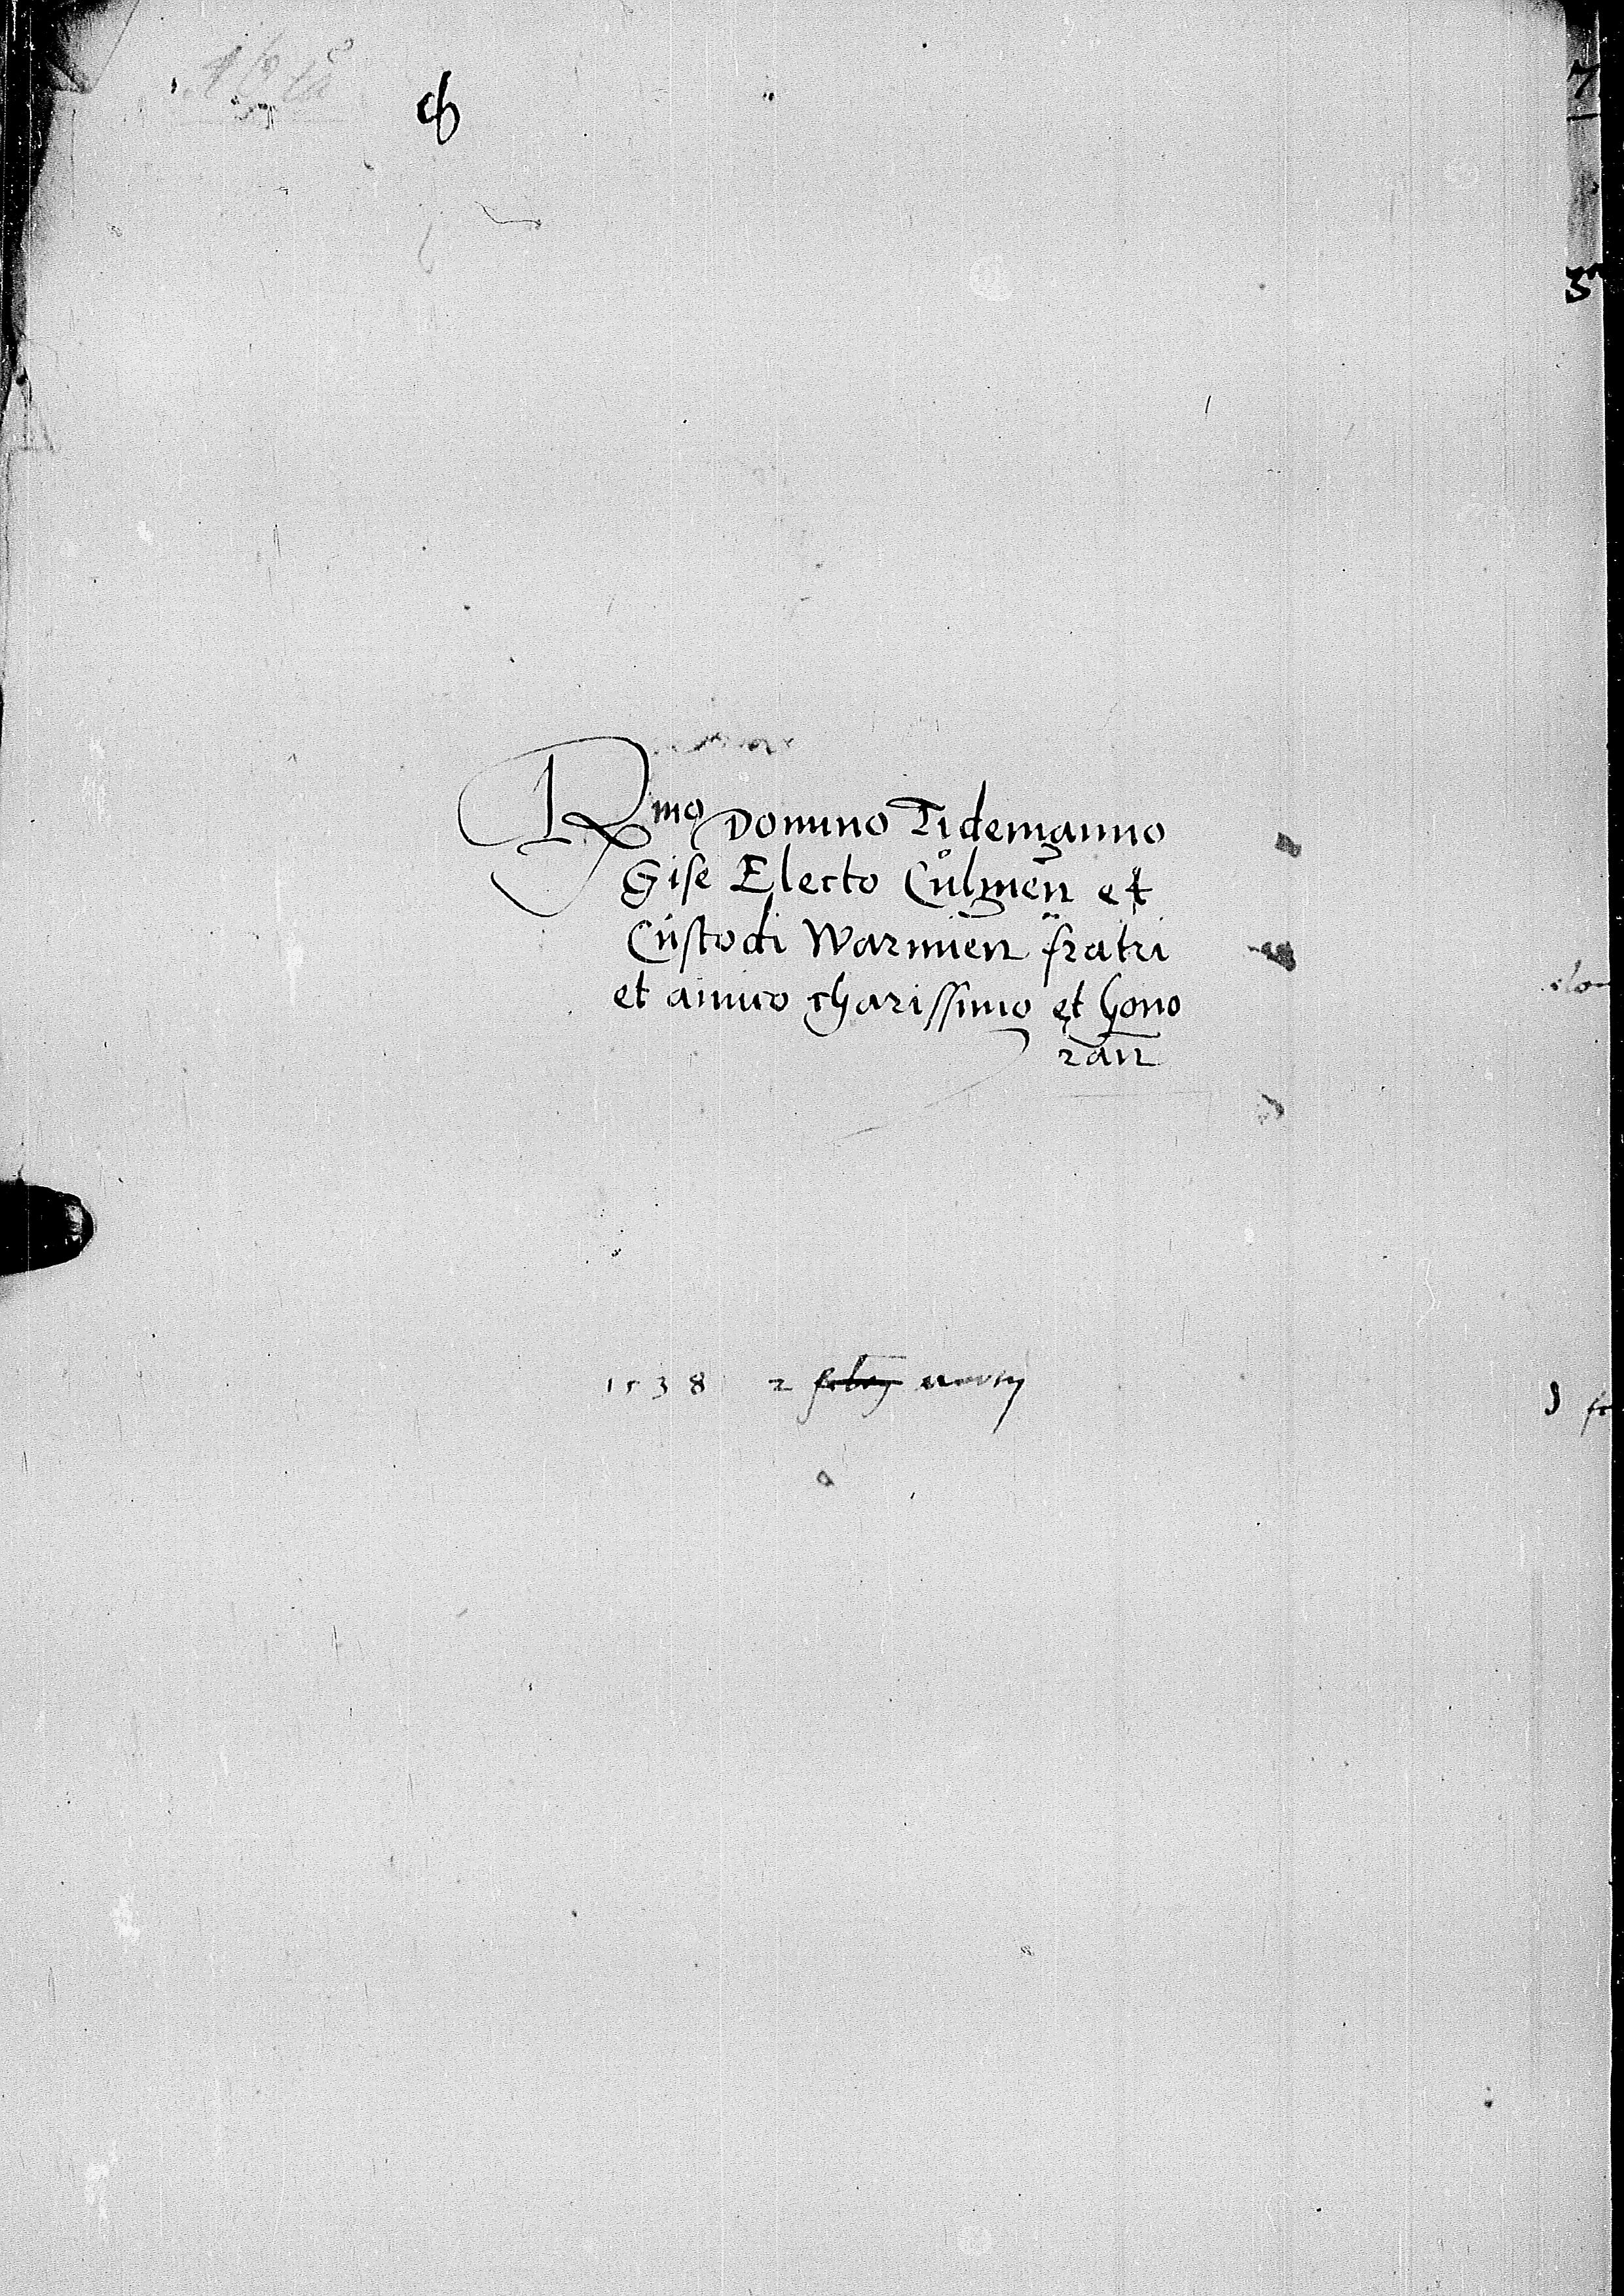 Rmo Domino Tidemanno
Gise Electo Culmen et
Custodi Warmien fratri
et amico charissimo et hono
ran
1538 2